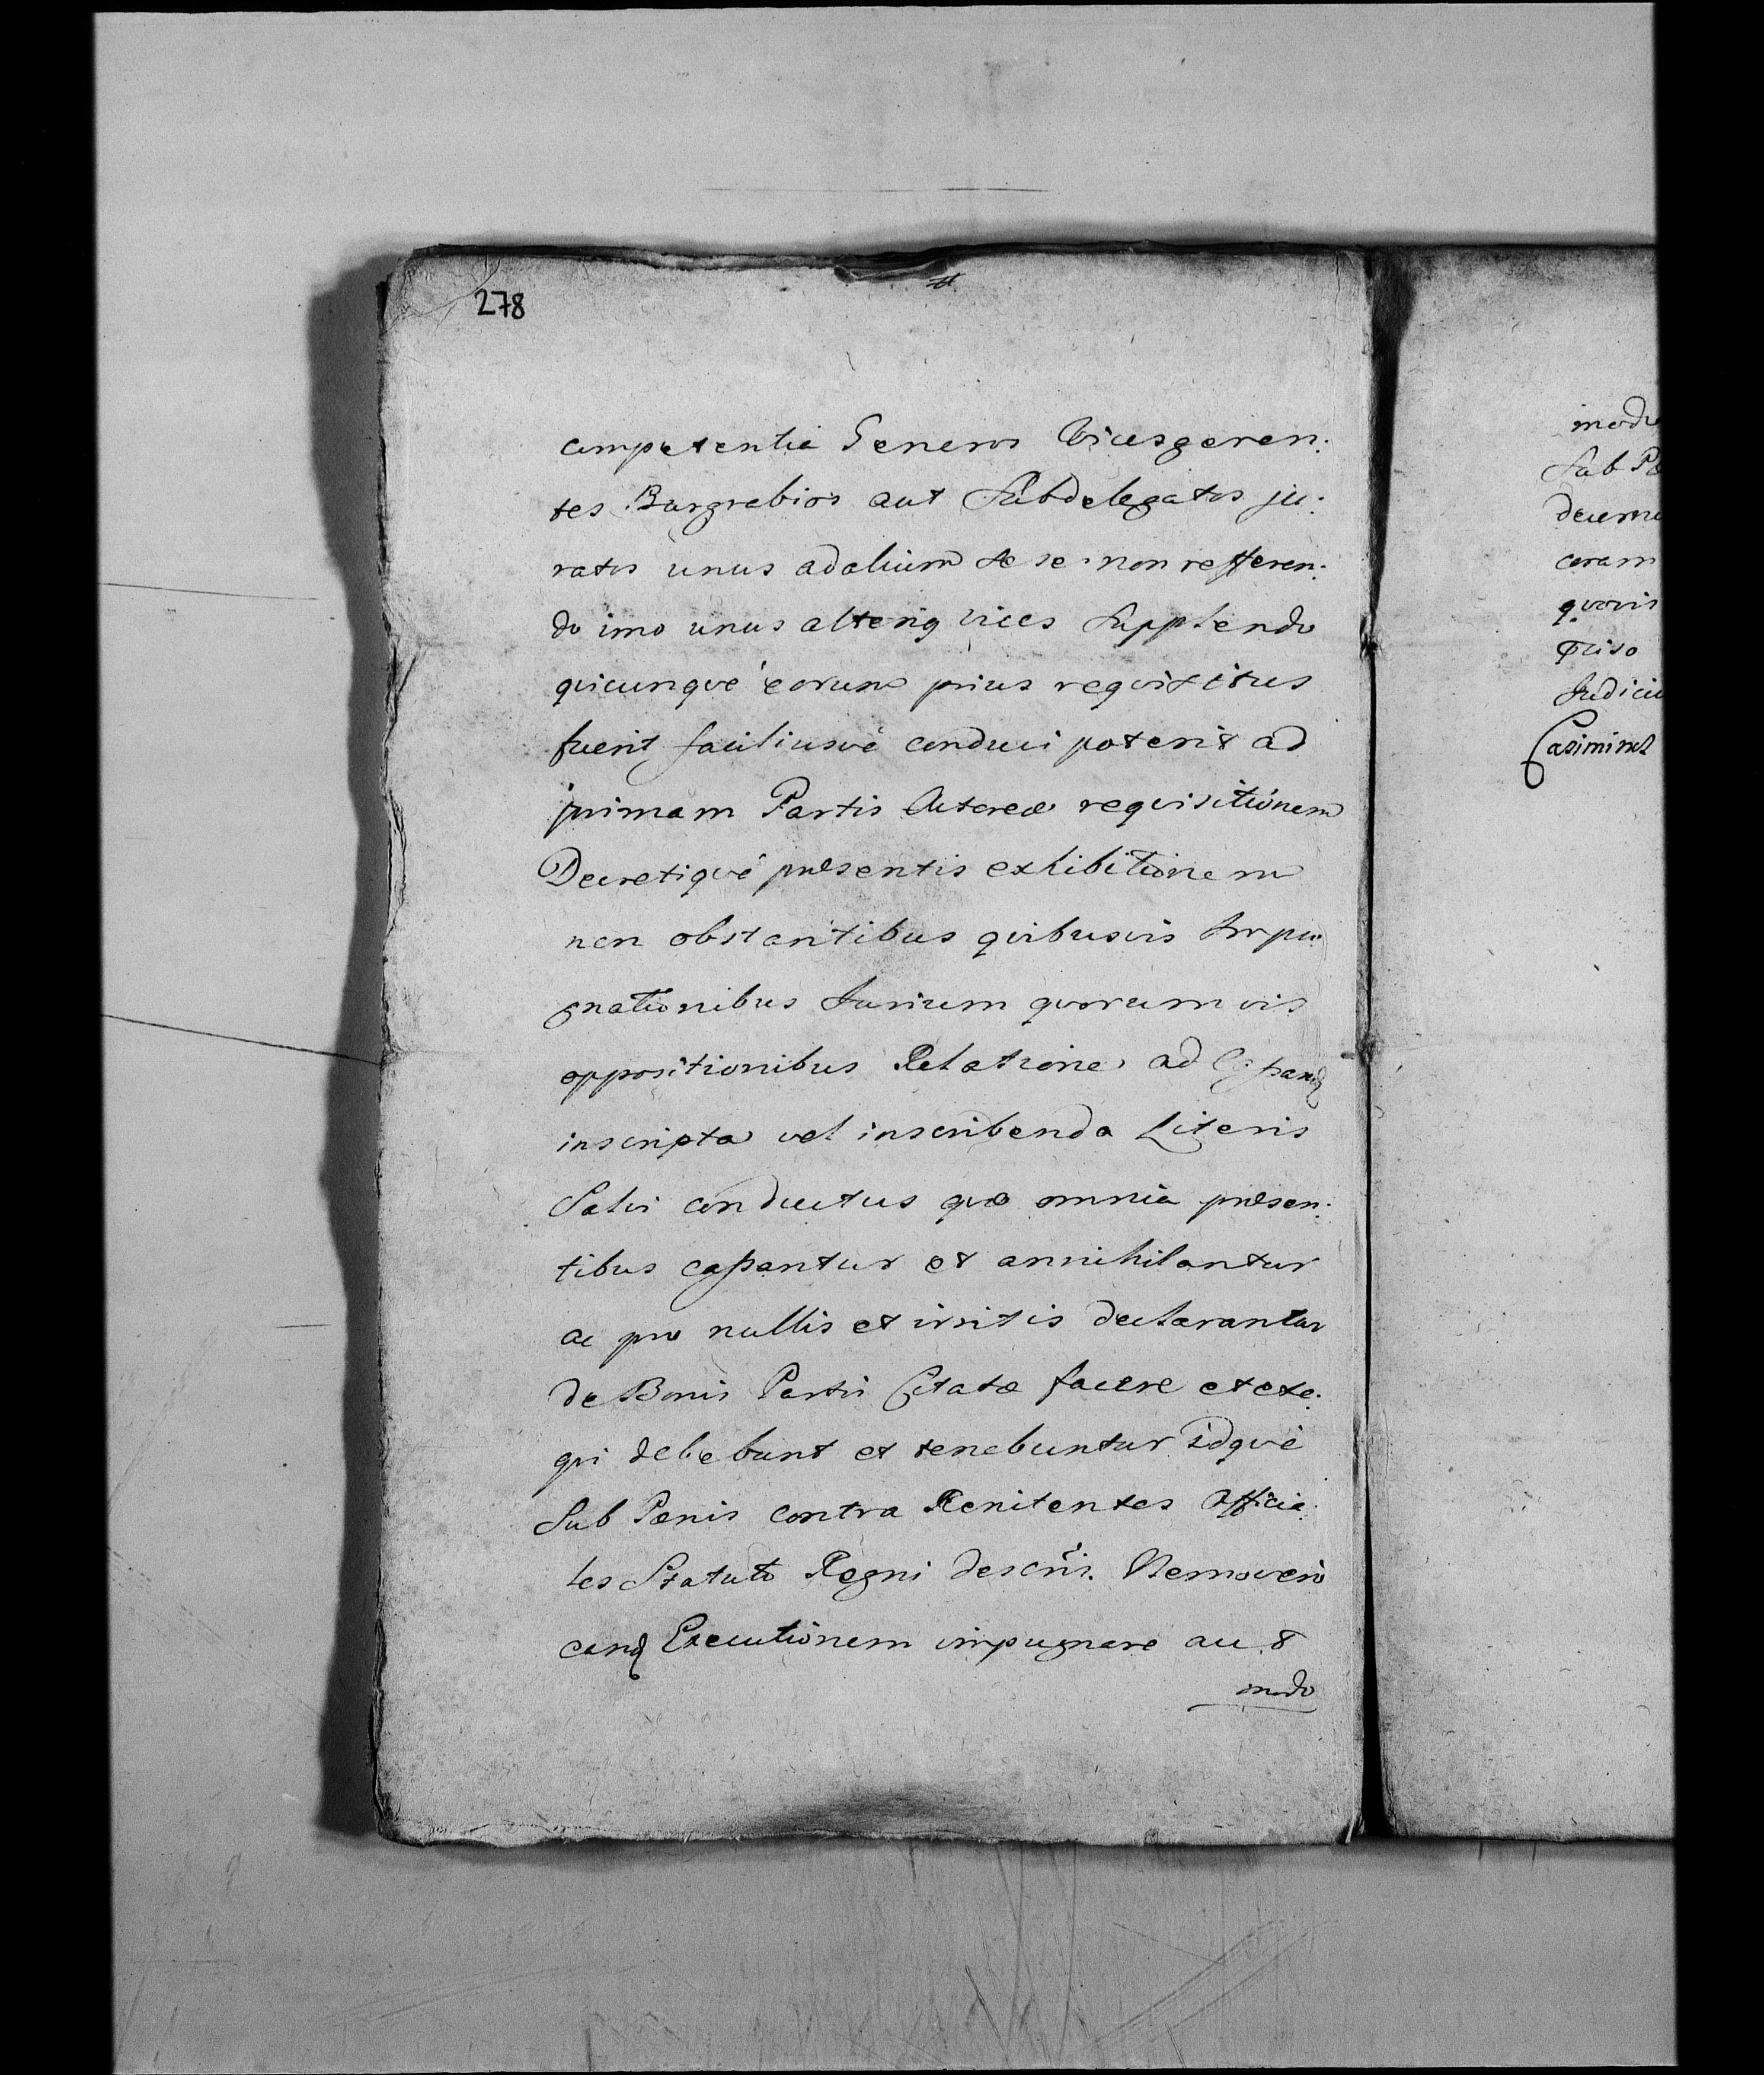 278
competentia Generos Vicesgeren:
tes Burgrabios aut Subdelegatos ju:
ratos unus ad alium de se non refferen:
do imo unus alteriq vices Supplendo
qvicunqve eorum prius reqvisitus
fuerit faciliusve conduci poterit ad
primam Partis Actoreæ reqvisitionem
Decretiqve præsentis exhibitionem
non obstantibus qvibusvis Impu:
gnationibus Jurium qvorumvis
oppositionibus Relatione ad
inscripta vel inscribenda Literis
Salvi conductus qvæ omnia præsen:
tibus cassantur et annihilantur
ac pro nullis et irritis declarantur
de Bonis Partis Citatæ facere et exe:
qvi debebunt et tenebuntur idqve
Sub Pænis contra Renitentes Officia:
les Statuto Regni descriis. Nemo vero
eand Executionem impugnare au
modo
modo
Sub
coram
qvovis
Judiciu